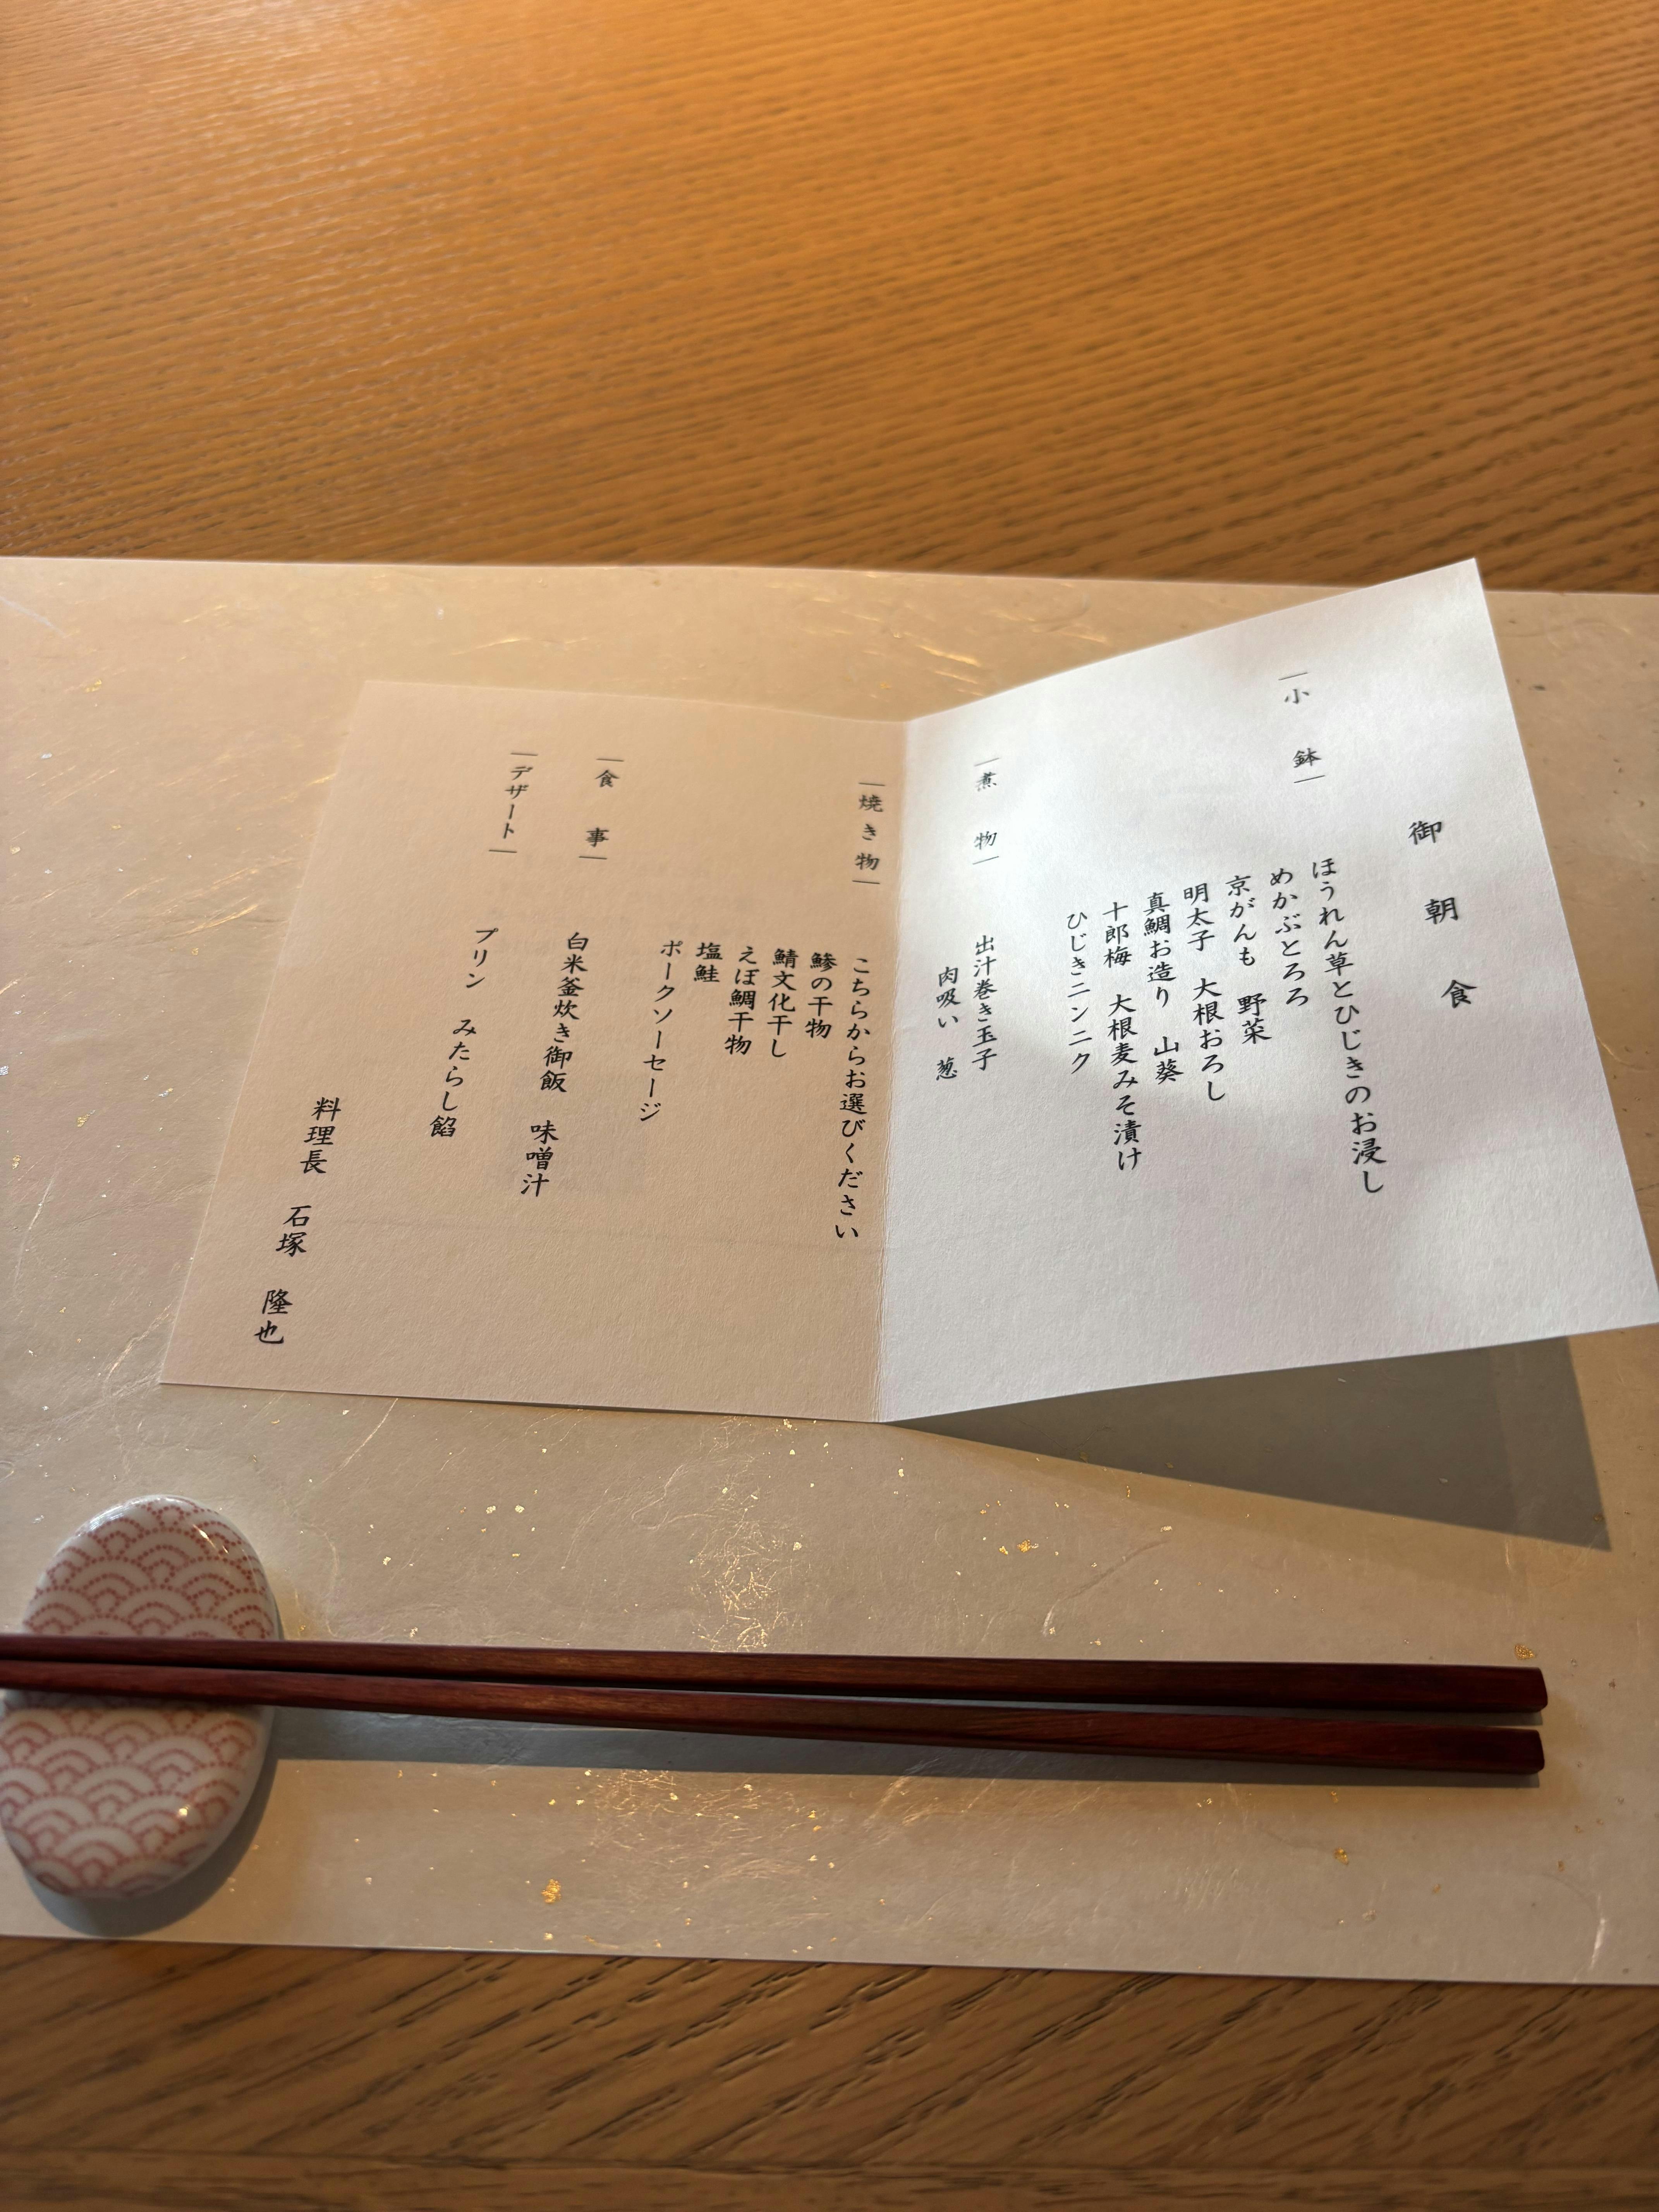 御朝食
小鉢
ほうれん草とひじきのお浸し
めかぶとろろ
京がんも 野菜
明太子 大根おろし
真鯛お造り 山葵
十郎梅 大根麦みそ漬け
ひじきニンニク
煮物
出汁巻き玉子
肉吸い 葱
焼き物
こちらからお選びください
鯵の干物
鯖文化干し
えぼ鯛干物
塩鮭
ポークソーセージ
食事
白米釜炊き御飯 味噌汁
デザート
プリン みたらし餡
料理長 石塚 隆也